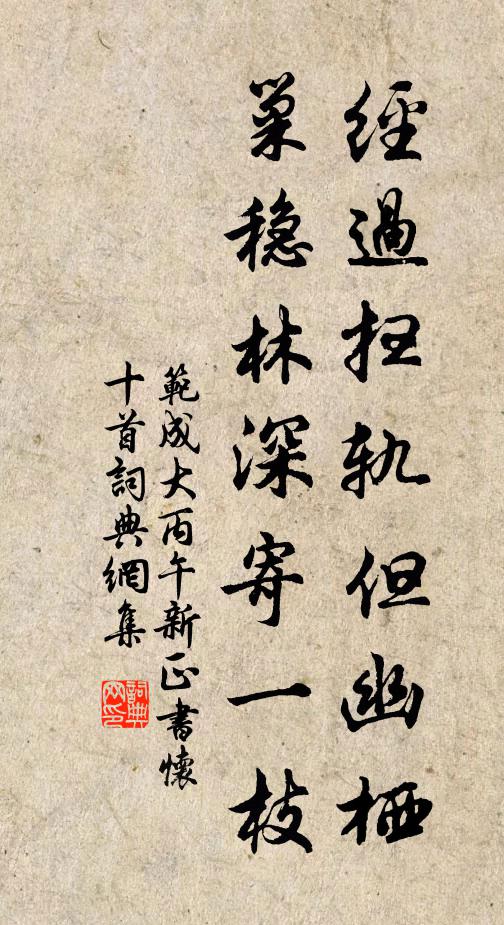 經過扫軌但幽栖
巢穏林深寄一枝
範成大丙午新正書懷
十首詞典網集
詞典网印